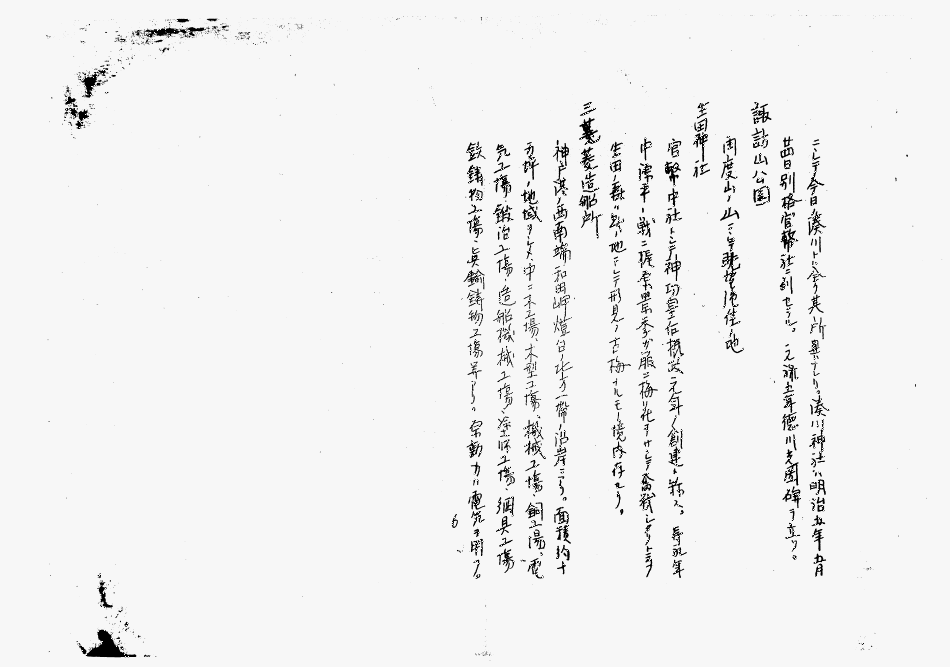 ニシテ今日ノ湊川トハ全ク其ノ所異ニセリ。湊川神社ハ明治五年五月
廿四日別格官幣社ニ列セラル。元禄五年徳川光圀碑ヲ立ツ。
諏訪山公園
再度山ノ山ニシテ眺望絶佳ノ地
生田神社
官幣中社トシテ神功皇后摂政元年ノ創建ト称ス。寿永年
中源平ノ戦ニ梶原景季ガ箙ニ梅ノ花ヲサシテ奮戦シタリトテフ
生田ノ森ハ此ノ地ニシテ形見ノ古梅ナルモノ境内存セリ。
三菱造船所
神戸港ノ西南端和田岬燈台ノ北方一帯ノ沿岸ニアリ。面積約十
万坪ノ地域ヲシメ中ニ木工場、木型工場、機械工場、銅工場、電
気工場、鍛冶工場、造船機械工場、塗師工場、綱具工場
鉄鋳物工場、真鍮鋳物工場等アリ。原動力ハ電気ヲ用フ。
6